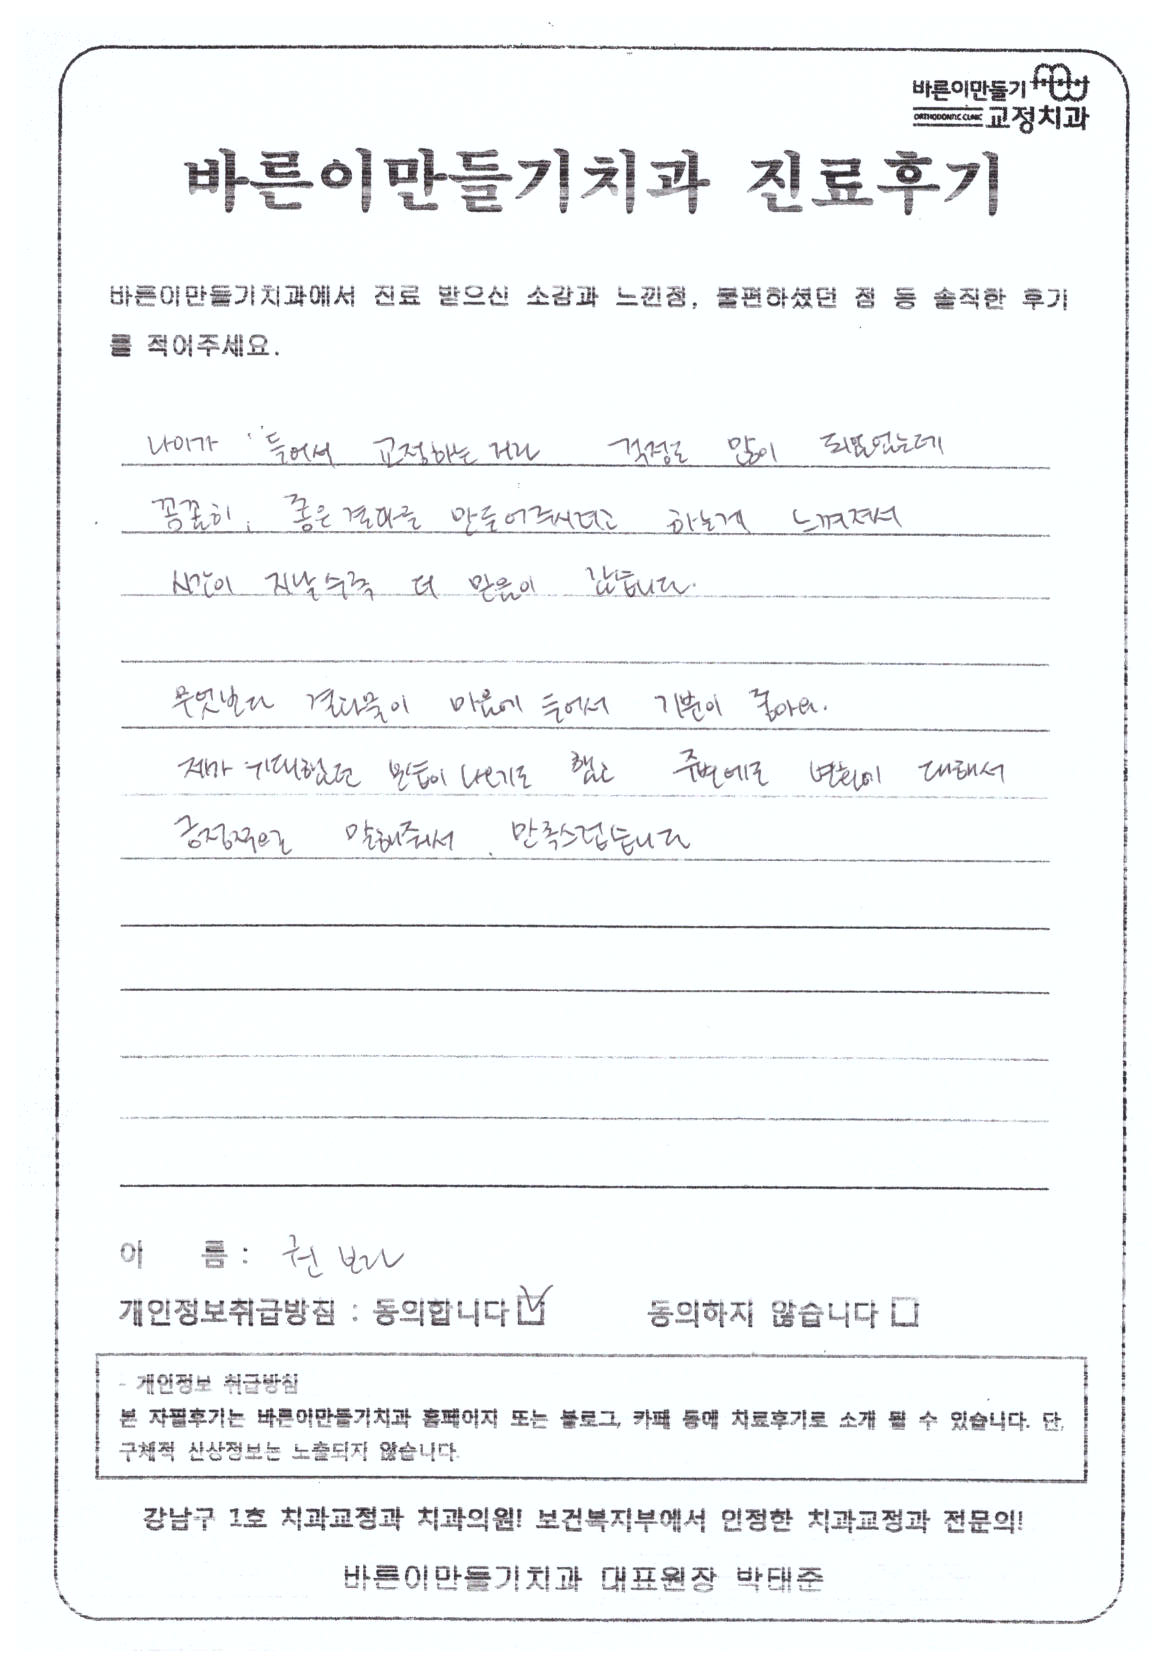 바른이만들기
ORTHODONTIC CLINIC 교정치과
바른이만들기치과 진료후기
바른이만들기치과에서 진료 받으신 소감과 느낀점, 불편하셨던 점 등 솔직한 후기
를 적어주세요.
나이가 들어서 교정하는 거라 걱정도 많이 되었었는데
꼼꼼히, 좋은 결과를 만들어주시려고 하는게 느껴져서
시간이 지날수록 더 믿음이 갔습니다.
무엇보다 결과물이 마음에 들어서 기분이 좋아요.
제가 기대했던 모습이 나오기도 했고 주변에도 변화에 대해서
긍정적으로 말해줘서 만족스럽습니다
이 름 : 권보라
개인정보취급방침 : 동의합니다 동의하지 않습니다
- 개인정보 취급방침
본 자필후기는 바른이만들기치과 홈페이지 또는 블로그, 카페 등에 치료후기로 소개 될 수 있습니다. 단,
구체적 신상정보는 노출되지 않습니다.
강남구 1호 치과교정과 치과의원! 보건복지부에서 인정한 치과교정과 전문의!
바른이만들기치과 대표원장 박태준